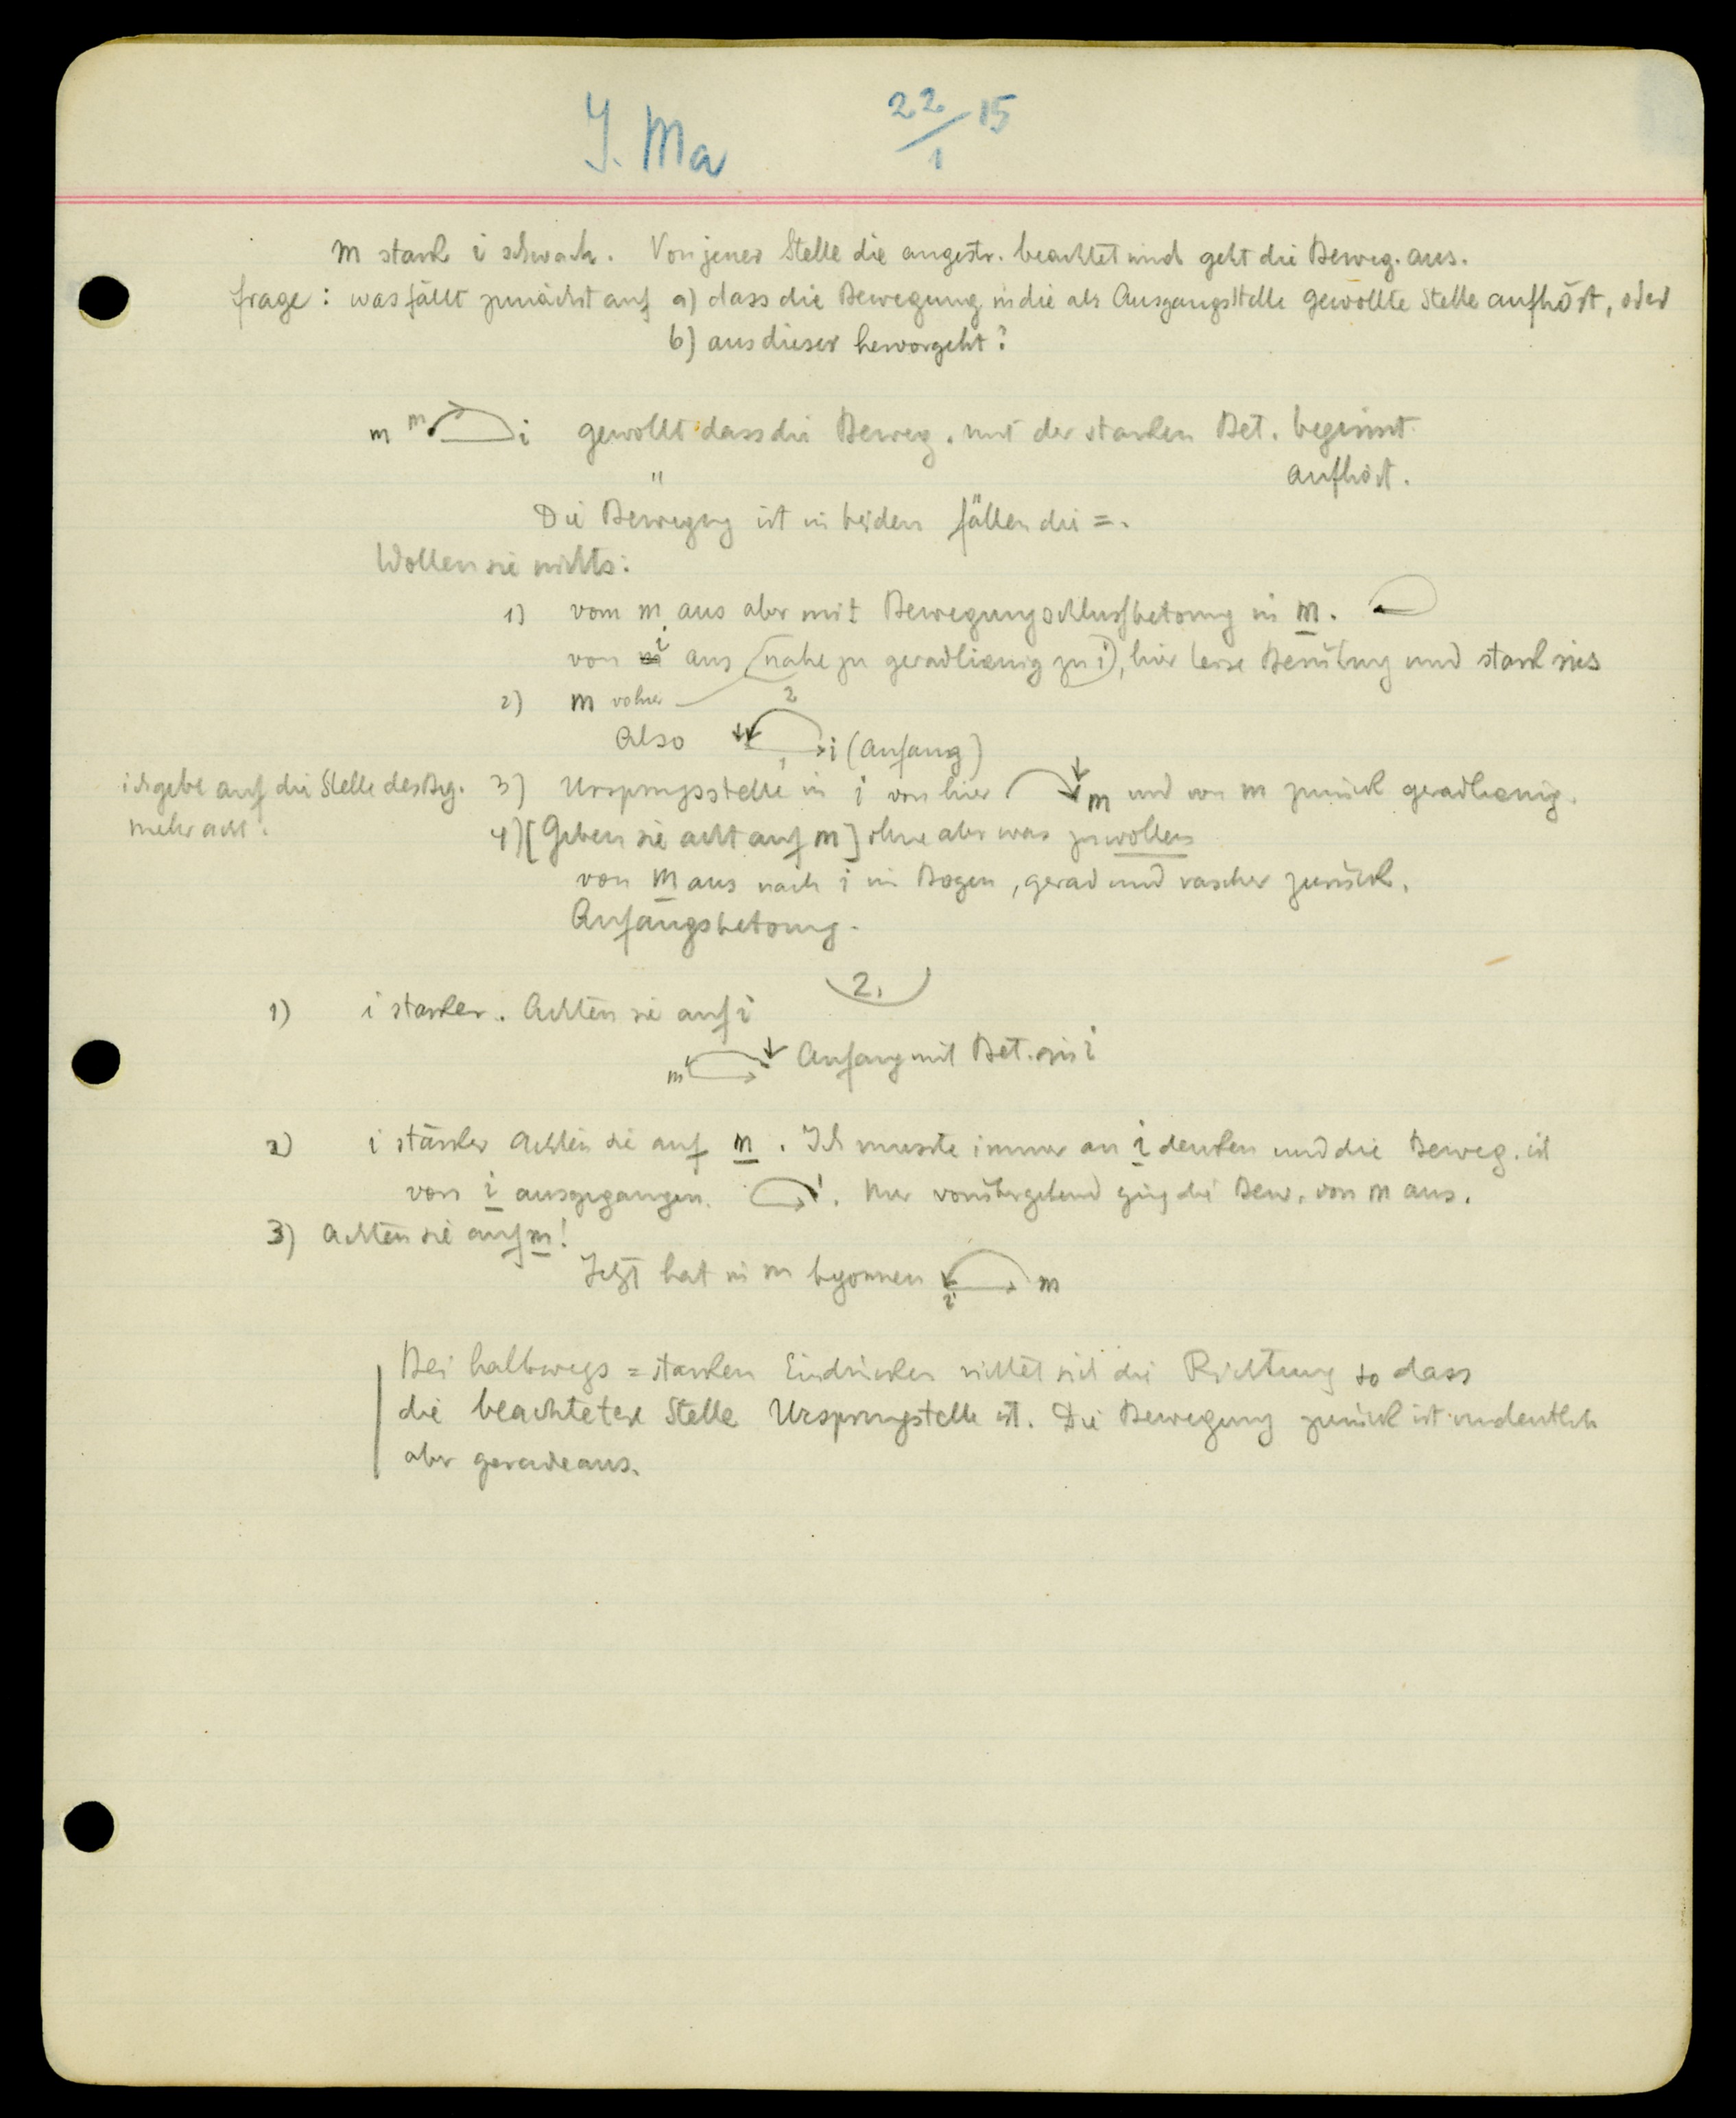 J. Ma 22/1 15
m stark i schwach. Von jener Stelle die angestr. beachtet wird geht die Beweg. aus.
Frage: was fällt zunächst auf a) dass die Bewegung in die als Ausgangsstelle gewollte Stelle aufhört, oder
b) aus dieser hervorgeht?
m m i gewollt dass die Beweg. mit der starken Bet. beginnt
" aufhört.
Die Bewegung ist in beiden Fällen die =.
Wollen sie nichts:
1) vom m aus aber mit Bewegungschlussbetonung in m.
von i aus (nahezu geradlienig zu i), hier leise Berührung und stark ins
2) m vorher
Also 2 1 i (Anfang)
ich gebe auf die Stelle des Beg. mehr acht.
3) Ursprungsstelle in i von hier m und von m zurück geradlienig.
4) [Geben sie acht auf m] ohne aber was zu wollen
von m aus nach i im Bogen, gerad und rascher zurück.
Anfangsbetonung.
2.
1) i starker. Achten sie auf i
m Anfang mit Bet. in i
2) i stärker Achten sie auf m. Ich musste immer an i denken und die Beweg. ist
von i ausgegangen. i. Nur vorübergehend ging die Bew. von m aus.
3) Achten sie auf m!
Jetzt hat in m begonnen i m
Bei halbwegs = starken Eindrücken richtet sich die Richtung so dass
die beachtetere Stelle Ursprungstelle ist. Die Bewegung zurück ist undeutlich
aber geradeaus.